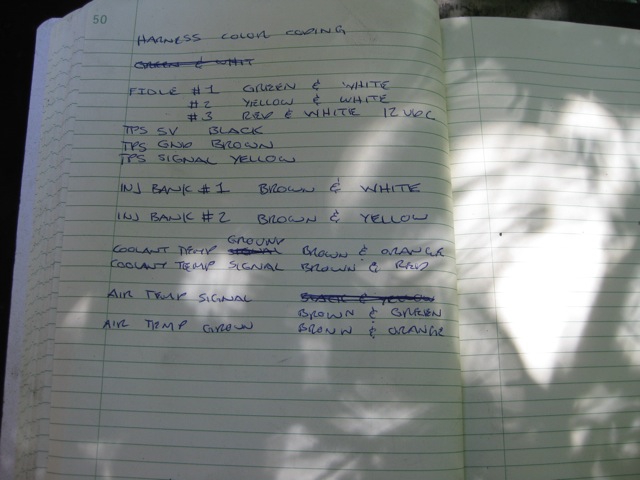 50
HARNESS COLOR CODING
GREEN & WHIT
FIDLE #1 GREEN & WHITE
#2 YELLOW & WHITE
#3 RED & WHITE 12 VDC
TPS 5V BLACK
TPS GND BROWN
TPS SIGNAL YELLOW
INJ BANK #1 BROWN & WHITE
INJ BANK #2 BROWN & YELLOW
GROUND
COOLANT TEMP SIGNAL BROWN & ORANGE
COOLANT TEMP SIGNAL BROWN & RED
AIR TEMP SIGNAL BLACK & YELLOW
BROWN & GREEN
AIR TEMP GROUN BROWN & ORANGE